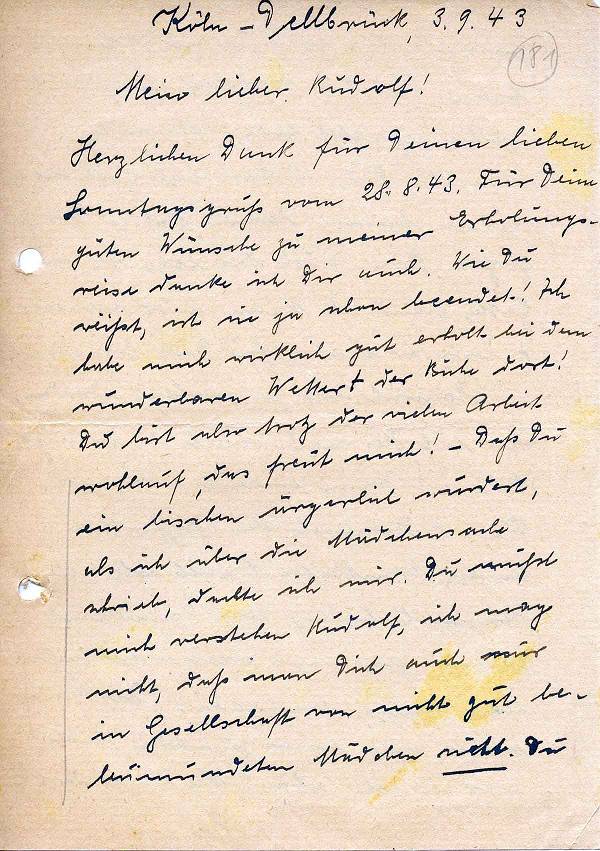 Köln-Dellbrück, 3.9.43
181
Mein lieber Rudolf!
Herzlichen Dank für Deinen lieben
Sonntagsgruß vom 28.8.43. Für Deine
guten Wünsche zu meiner Erholungs-
reise danke ich Dir auch. Wie Du
weißt, ist sie ja schon beendet! Ich
habe mich wirklich gut erholt bei dem
wunderbaren Wetter + der Ruhe dort!
Du bist also trotz der vielen Arbeit
wohlauf, das freut mich! – Daß Du
ein bischen ärgerlich würdest,
als ich über die Mädchensache
schrieb, dachte ich mir. Du mußt
mich verstehen Rudolf, ich mag
nicht, daß man Dich auch nur
in Gesellschaft von nicht gut be-
leumundeten Mädchen sieht. Du